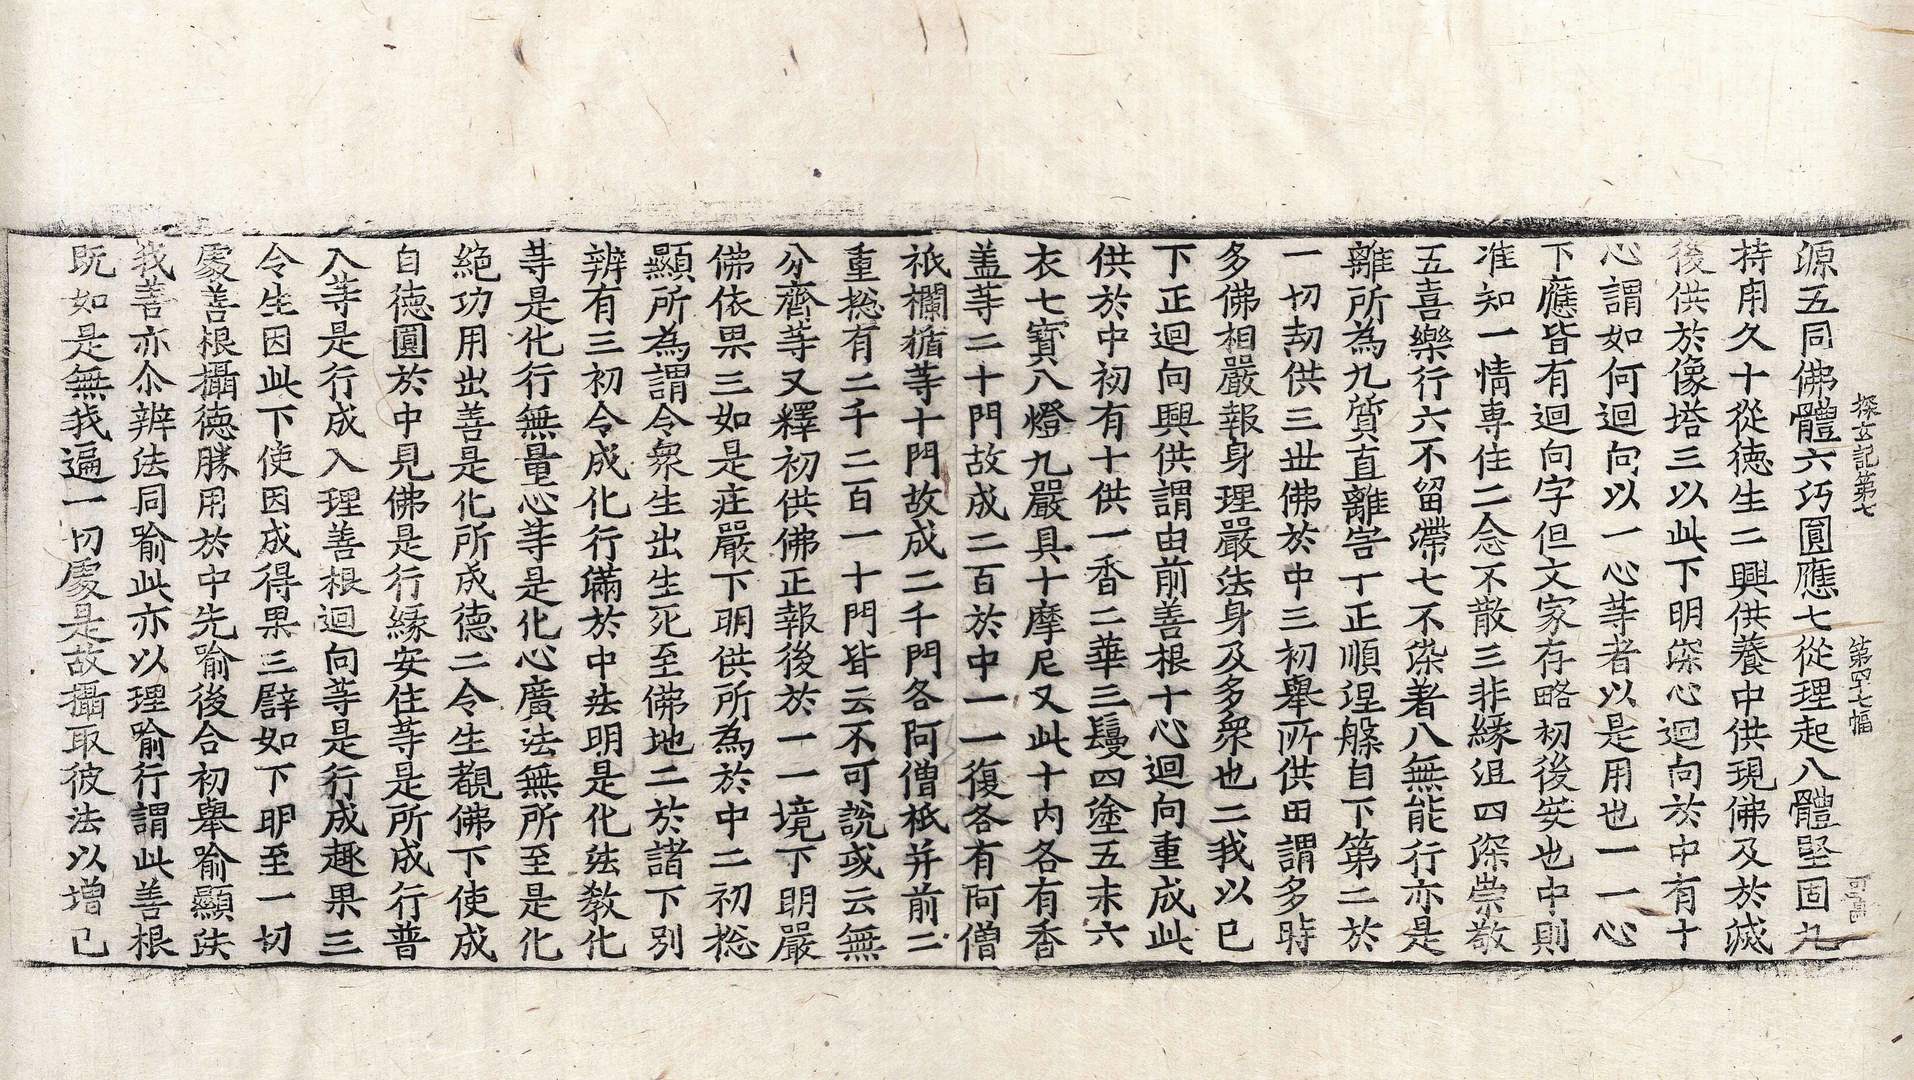 探玄記第七　第四十七幅
源五同佛體六巧圓應七從理起八體堅固九
持用久十從徳生二興供養中供現佛及於滅
後供於像塔三以此下明深心迴向於中有十
心謂如何迴向以一心䓁者以是用也一一心
下應皆有迴向字但文家存略初後安也中則
准知一情専住二念不散三非縁沮四深崇敬
五喜樂行六不留滯七不染著八無能行亦是
離所為九質直離害十正順涅槃自下第二於
一切劫供三世佛於中三初舉所供田謂多時
多佛相嚴報身理嚴法身及多衆也二我以已
下正迴向興供謂由前善根十心迴向重成此
供於中初有十供一香二華三鬘四塗五末六
衣七寳八燈九嚴具十摩尼又此十内各有香
盖䓁二十門故成二百於中一一復各有阿僧
祇欄楯䓁十門故成二千門各阿僧祇并前二
重捴有二千二百一十門皆云不可說或云無
分齊䓁又釋初供佛正報後於一一境下明嚴
佛依果三如是荘嚴下明供所為於中二初捴
顯所為謂令衆生出生死至佛地二於諸下别
辨有三初令成化行滿於中法明是化法教化
䓁是化行無量心䓁是化心廣法無所至是化
絶功用出善是化所成德二令生覩佛下使成
自德圓於中見佛是行縁安住䓁是所成行普
入䓁是行成入理善根迴向䓁是行成趣果三
令生因此下使因成得果三譬如下明至一切
處善根攝德勝用於中先喻後合初舉喻顯法
我善亦尒辨法同喻此亦以理喻行謂此善根
既如是無我遍一切處是故攝取彼法以增已